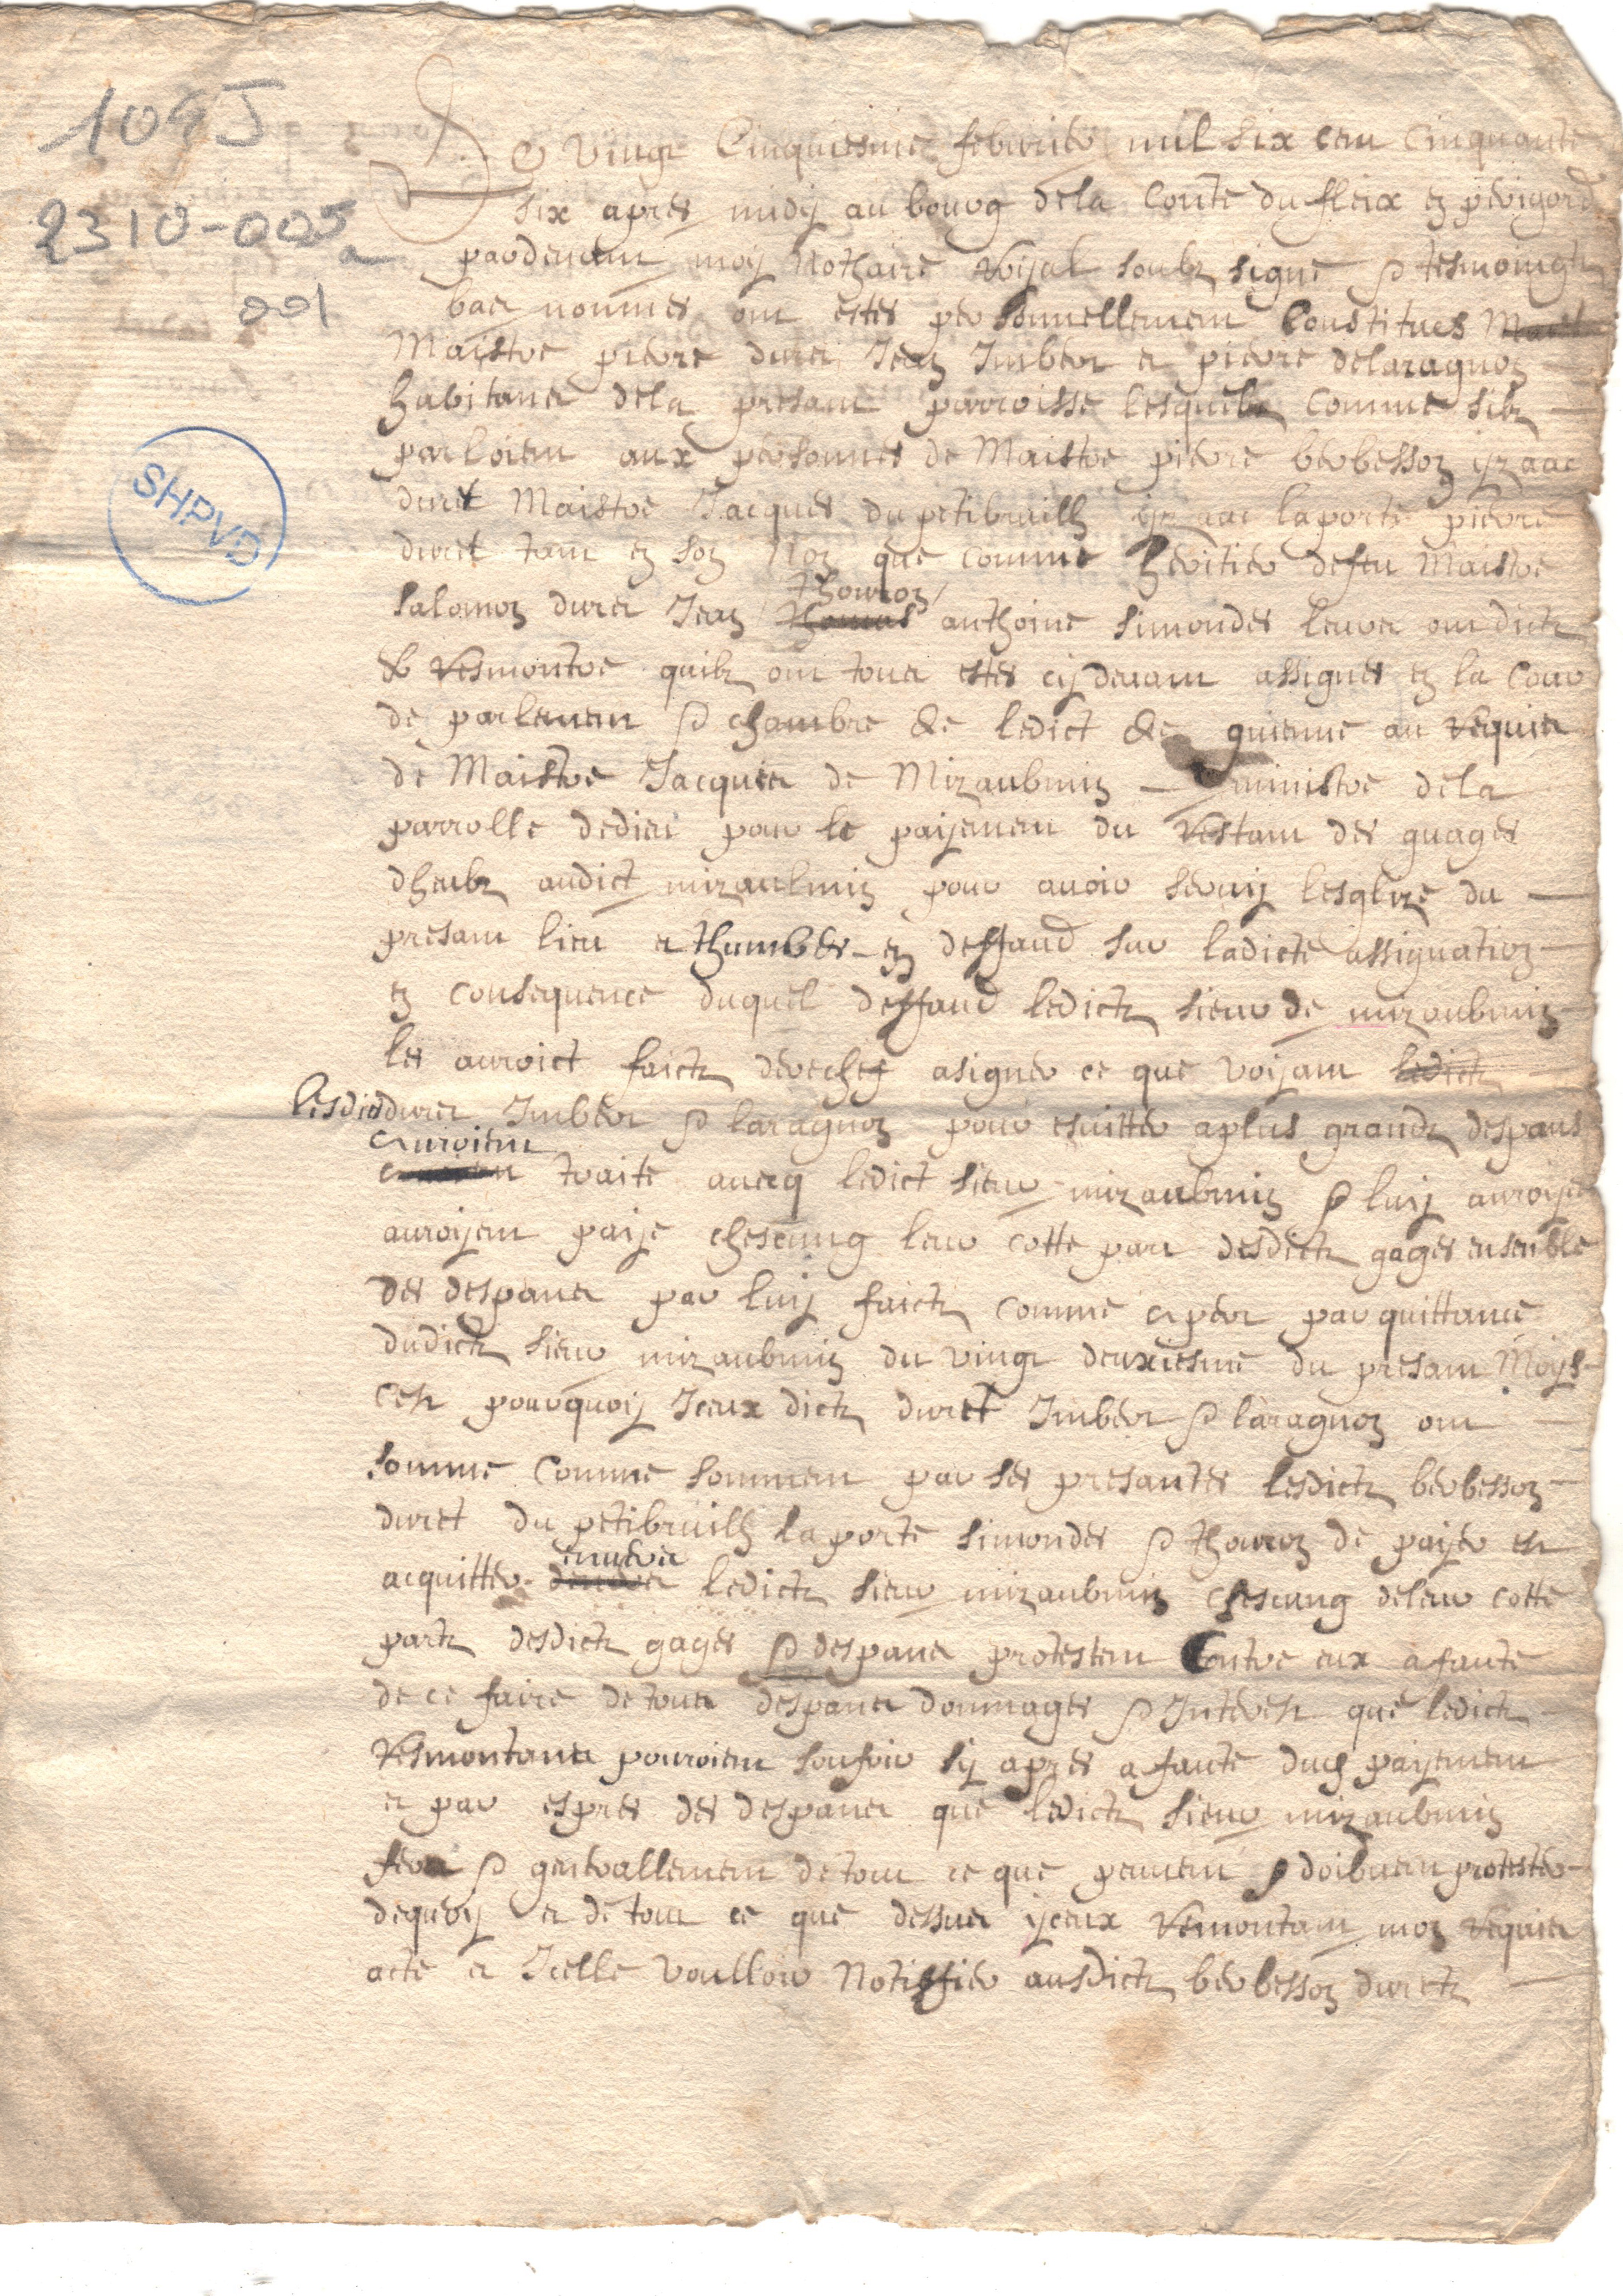 109J
2310-005
a
001
SHPVD
Le vingt cinquiesme febvrier mil six cent cinquante
six apres midy au bourg de la Conté du fleix en perigord
pardevant moy Nothaire Royal soubz signé & tesmoingtz
bas nommes ont estes personnellement Constitues
Maistre pierre duret Jean Imbert et pierre delaragnon
habitans de la presant parroisse lesquelz comme silz
parloient aux personnes de Maistre pierre berbesson yzaac
duret Maistre Jacques du petibruilh yzaac laporte pierre
duret tant en son Non que comme heritier defeu Maistre
thouron
salomon duret Jean thomas anthoine simondes leurs ont dict
& Resmontre quilz ont tous estes cy devant assignes en la Cour
de parlement & chambre de ledict de guienne au Requis
de Maistre Jacques de Mizaubmin ministre de la
parrolle dedieu pour le paijement du Restant des guages
dheubz audict mizaulmin pour avoir servy lesglize du
presant lieu et thumbes en deffaud sur ladicte assignation
en consequence duquel deffaud ledict sieur de mizaubmin
les auroict faictz derechef asigner ce que voijant ledictz
lesdictz duret Imbert & laragnon pour esvitter aplus grandz despans
auroient
traite avecq ledict sieur mizaubmin & luy auroijent
auroijent paije chescung leur cotte part desdictz gages ensemble
des despans par luy faictz comme apert par quittance
dudictz sieur mizaubmin du vingt deuxiesme du presant Moys
cest pourquoy Iceux dictz duret Imbert & laragnon ont
somme comme somment par ses presantes lesdictz berbesson
duret du petibruilh laporte simondes & thouron de paijer et
envers
acquitter ledictz sieur mizaubmin chescung de leur cotte
partz desdictz gages & despans protestent Contre eux afaute
de ce faire de tous despans dommages & Interest que ledictz
Resmontans pouroient soufrir sy apres afaute ducq paijement
et par espres des despans que ledictz sieur mizaubmin
fera & generallement de tout ce que peuvent & doibvent protester
dequoy et de tout ce que dessus yceux Remontant mon Requis
acte et Icelle voulloir Notiffier ausdictz berbesson duretz